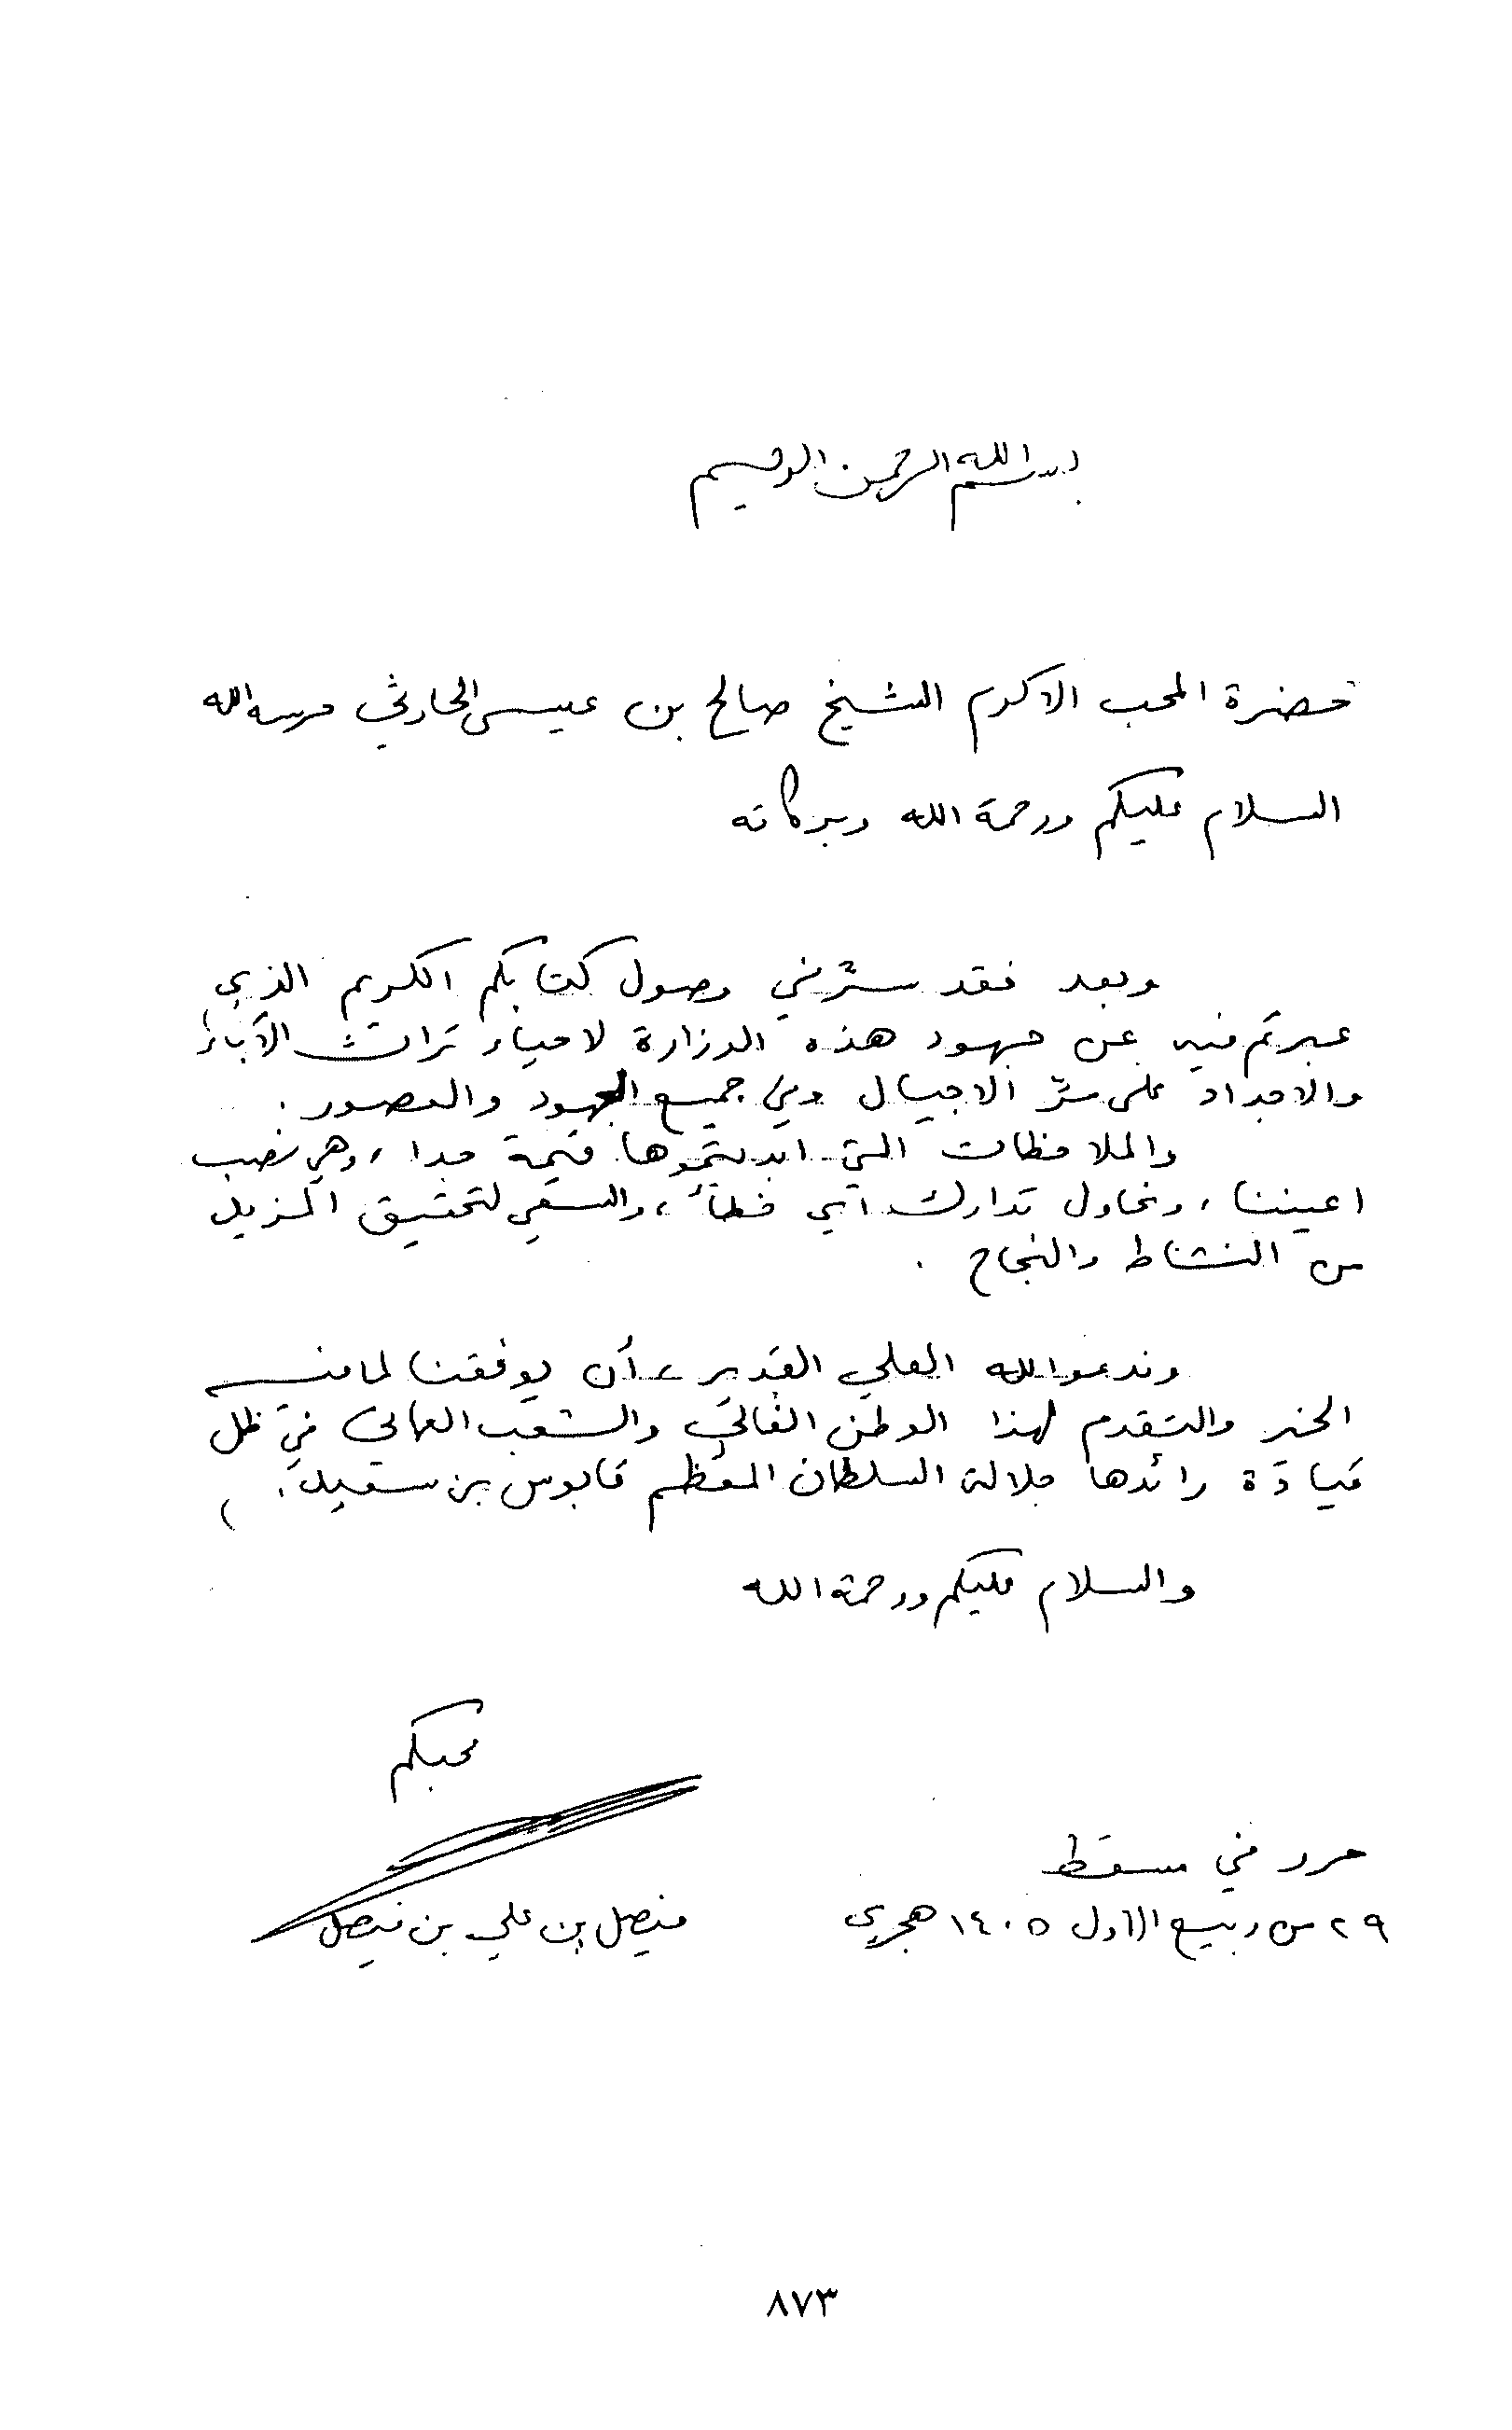 بسم الله الرحمن الرحيم
حضرة المحب الاكرم الشيخ صالح بن عيسى الحارثي حرسه الله
السلام عليكم ورحمة الله وبركاته
وبعد فقد سرّني وصول كتابكم الكريم الذي
عبرتم فيه عن جهود هذه الوزارة لاحياء تراث الآباء
والاجداد على مرّ الاجيال وفي جميع العهود والعصور .
والملاحظات التي ابديتموها قيمة جدا ، وهي نصب
اعيننا ، ونحاول تدارك أي خطأ ، والسعي لتحقيق المزيد
من النشاط والنجاح .
وندعو الله العلي القدير ، أن يوفقنا لما فيه
الخير والتقدم لهذا الوطن الغالي والشعب العماني في ظل
قيادة رائدها جلالة السلطان المعظم قابوس بن سعيد .
والسلام عليكم ورحمة الله
محبكم
فيصل بن علي بن فيصل
حرر في مسقط
٢٩ من ربيع الاول ١٤٠٥ هجري
٨٧٣